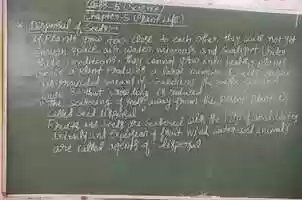 Class-5 (Science)
Chapter-5 (Plant Life)
* Dispersal of Seeds
If Plants grow too close to each other, they will not get
enough space, air, water, minerals and sunlight. Under
these conditions, they cannot grow into healthy plants
Since a Plant Produces a large number of seeds,
that crowding is reduced
The scattering of seeds away from the Parent Plant is
called Seed dispersal.
Fruits and Seeds are scattered with the help of wind, water,
animals and explosion of fruit. Wind, water and animals
are called agents of dispersal